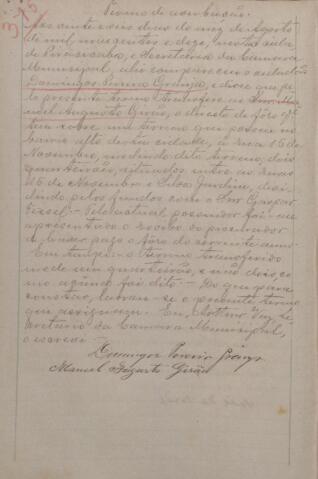 375
Termo de averbação.
Aos vinte e dous dias do mez de Agosto
de mil, novecentos e doze, nesta cidade
de Piracicaba, e Secretaria da Camara
Municipal, ahi compareceu o cidadão
Domingos Pereira Granja, e disse que pe-
lo presente termo transferia ao Snr. Ma-
noel Augusto Girão, o direito de fôro que
tem sobre um terreno que possue no
bairro alto desta cidade, á rua 15 de
Novembro, medindo dito terreno, dois
quarteirões, situados entre as ruas
15 de Novembro e Silva Jardim, divi-
dindo pelos fundos com o Snr. Gaspar
Fessel. Pelo actual possuidor foi-me
apresentado o recibo do procurador
de haver pago o fôro do corrente anno.
Em tempo: o terreno transferido
mede um quarteirão, e não dois, co-
mo acima foi dito. Do que para
constar, lavrou-se o presente termo
que assignam. Eu, Arthur Vaz, Se-
cretario da Camara Municipal,
o escrevi.
Domingos Pereira Granja
Manoel Augusto Girão